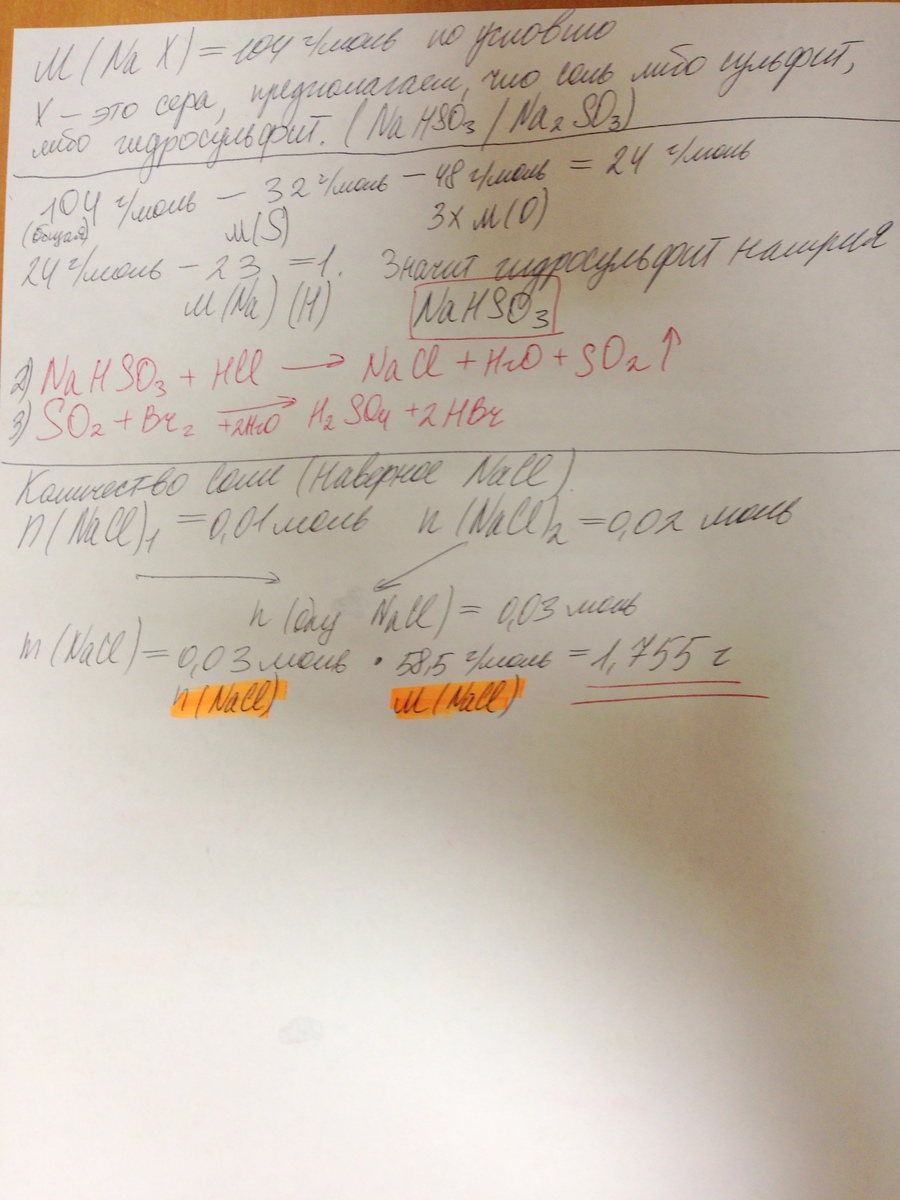 M(NaX) = 104 г/моль по условию
X – это сера, предполагаем, что соль либо сульфит,
либо гидросульфит. (NaHSO₃ / Na₂SO₃)
104 г/моль – 32 г/моль – 48 г/моль = 24 г/моль
(общая) M(S) 3x M(O)
24 г/моль – 23 = 1. Значит гидросульфит натрия
M(Na) (H) NaHSO₃
2) NaHSO₃ + HCl → NaCl + H₂O + SO₂↑
3) SO₂ + Br₂ → H₂SO₄ + 2HBr
+2H₂O
Количество соли (Наверное NaCl)
n(NaCl)₁ = 0,01 моль n(NaCl)₂ = 0,02 моль
n(общ NaCl) = 0,03 моль
m(NaCl) = 0,03 моль • 58,5 г/моль = 1,755 г
n(NaCl) M(NaCl)